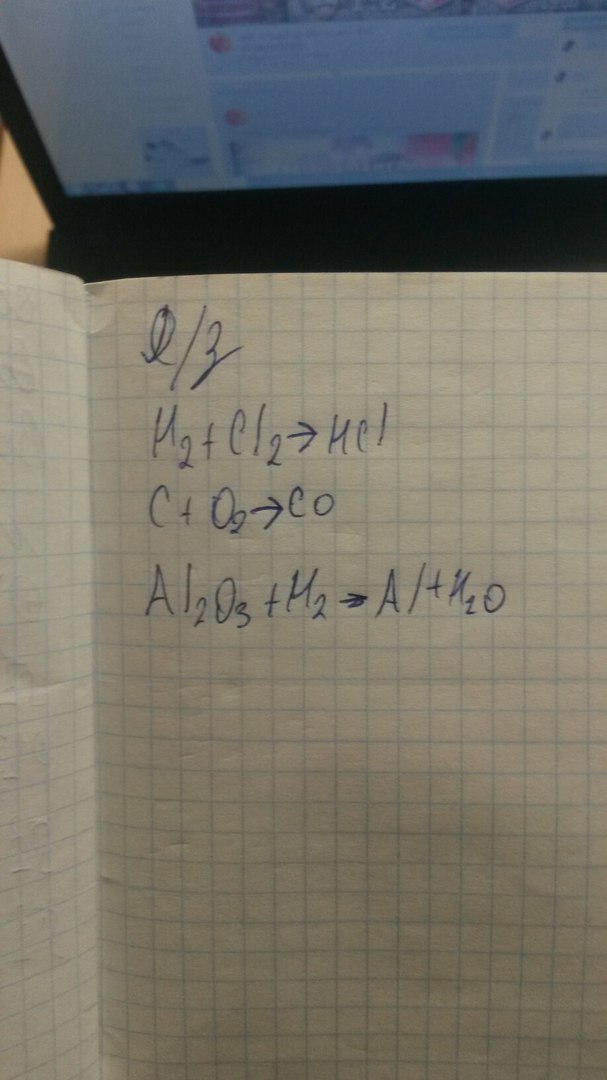 Д/з
H₂+Cl₂→HCl
C+O₂→CO
Al₂O₃+H₂→Al+H₂O